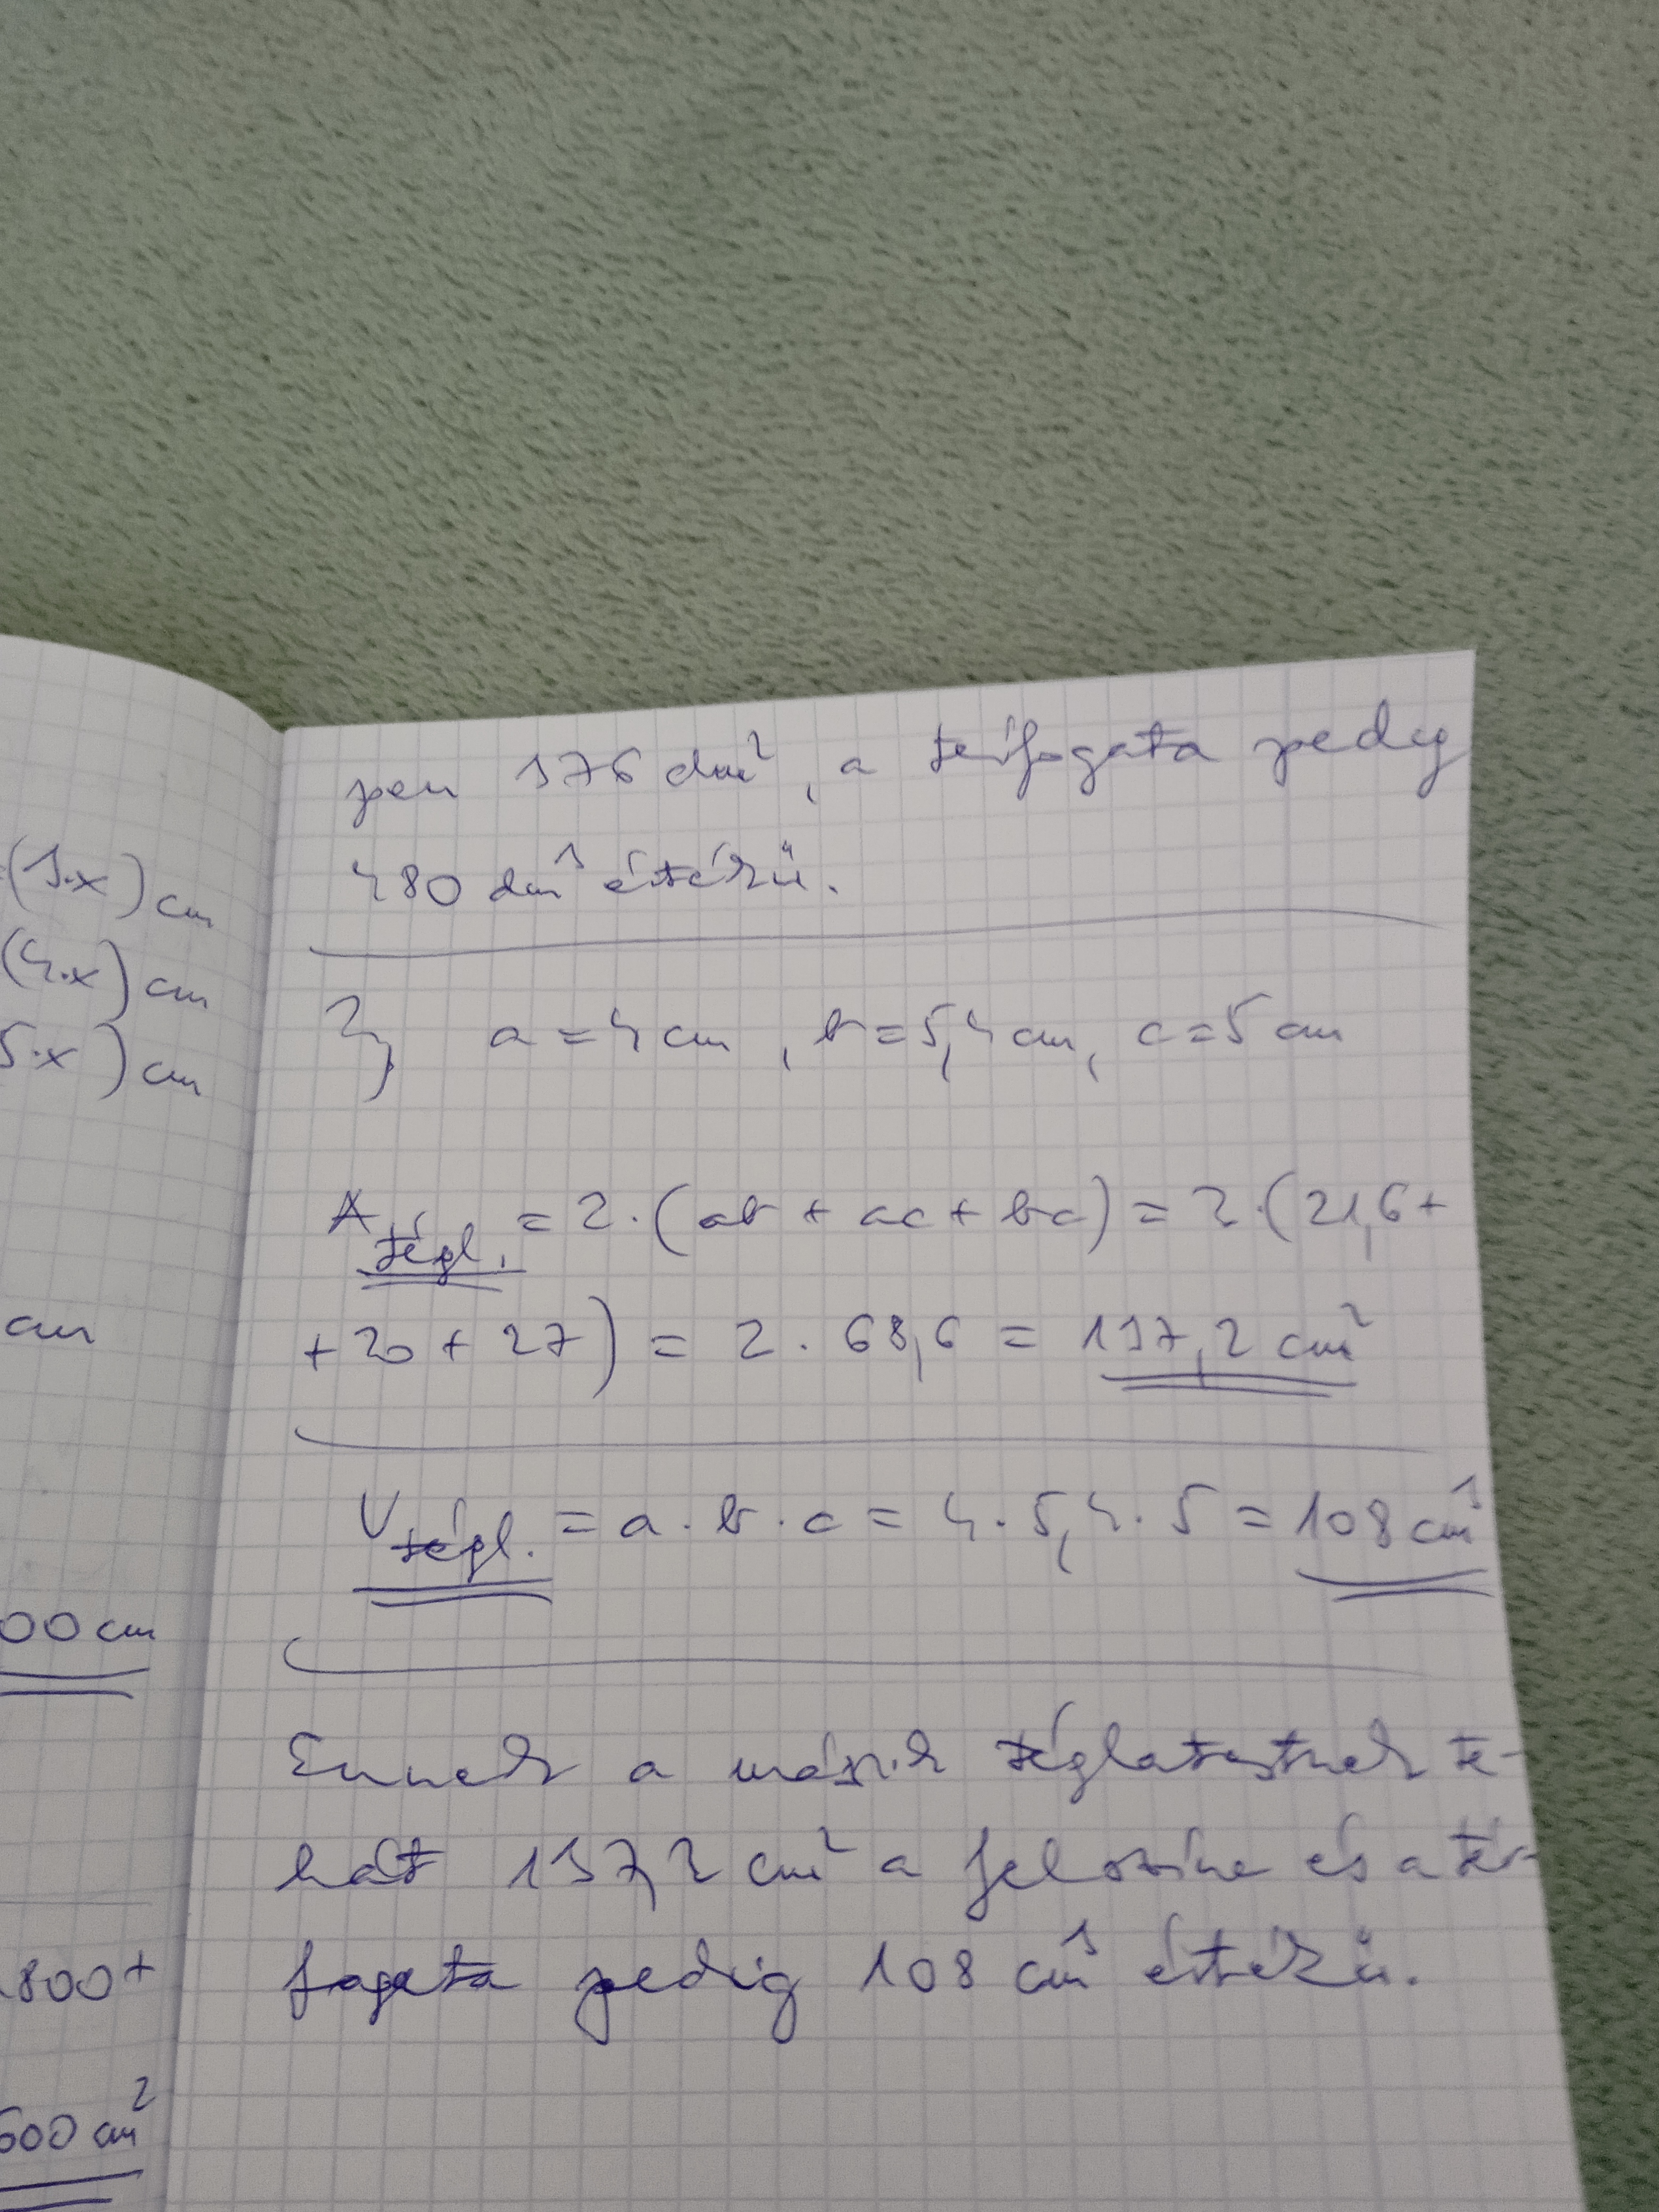 (3·x) cm
(4·x) cm
5·x) cm
cm
00 cm
800+
600 cm²
pen 376 dm², a térfogata pedig
480 dm³ értékű.
2, a = 4 cm, b = 5,4 cm, c = 5 cm
A tégl. = 2·(ab + ac + bc) = 2·(21,6+
+20+27) = 2·68,6 = 137,2 cm²
V tégl. = a·b·c = 4·5,4·5 = 108 cm³
Ennek a másik téglatestnek te-
hát 137,2 cm² a felszíne és a tér-
fogata pedig 108 cm³ értékű.